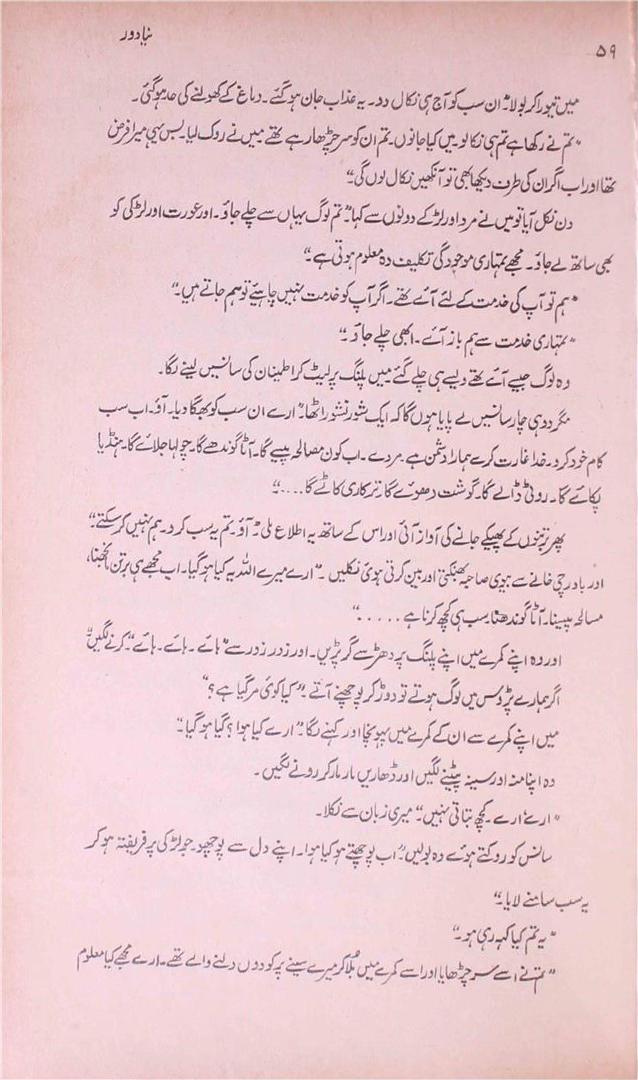 نیا دور
۵۹
میں تیورا کر بولا۔" ان سب کو آج ہی نکال دو۔ یہ عذاب جان ہو گئے۔ دماغ کے کھولنے کی حد ہو گئی۔
"تم نے رکھا ہے تم ہی نکالو میں کیا جانوں۔ تم ان کو سر چڑھا رہے تھے میں نے روک لیا۔ بس یہی میرا فرض
تھا اور اب اگر ان کی طرف دیکھا بھی تو آنکھیں نکال لوں گی۔"
دن نکل آیا تو میں نے مرد اور لڑکے دونوں سے کہا۔" تم لوگ یہاں سے چلے جاؤ۔ اور عورت اور لڑکی کو
بھی ساتھ لے جاؤ۔ مجھے تمہاری موجودگی تکلیف دہ معلوم ہوتی ہے۔"
"ہم تو آپ کی خدمت کے لئے آئے تھے۔ اگر آپ کو خدمت نہیں چاہیئے تو ہم جاتے ہیں۔"
"تمہاری خدمت سے ہم باز آئے۔ ابھی چلے جاؤ۔"
وہ لوگ جیسے آئے تھے ویسے ہی چلے گئے میں پلنگ پر لیٹ کر اطمینان کی سانسیں لینے لگا۔
مگر دو ہی چار سانسیں لے پایا ہوں گا کہ ایک شور نشور اٹھا۔" ارے ان سب کو بھگا دیا۔ آؤ۔ اب سب
کام خود کرو۔ خدا غارت کرے ہمارا دشمن ہے مردے۔ اب کون مصالحہ پیسے گا۔ آٹا گوندھے گا۔ چولہا جلائے گا۔ ہنڈیا
پکائے گا۔ روٹی ڈالے گا۔ گوشت دھوئے گا ترکاری کاٹے گا ...."
پھر برتنوں کے پھیکے جانے کی آواز آئی اور اس کے ساتھ یہ اطلاع ملی" آؤ۔ تم یہ سب کرو۔ ہم نہیں کر سکتے۔"
اور باورچی خانے سے بیوی صاحبہ بھنکتی اور بین کرتی ہوئی نکلیں۔" ارے میرے اللہ یہ کیا ہو گیا۔ اب مجھے ہی برتن مانجھنا،
مسالہ پیسنا۔ آٹا گوندھنا سب ہی کچھ کرنا ہے ....."
اور وہ اپنے کمرے میں اپنے پلنگ پر دھڑ سے گر پڑیں۔ اور زور زور سے "ہائے۔ ہائے۔ ہائے" کرنے لگیں۔"
اگر ہمارے پڑوس میں لوگ ہوتے تو دوڑ کر پوچھنے آتے۔" کیا کوئی مر گیا ہے؟"
میں اپنے کمرے سے ان کے کمرے میں پہونچا اور کہنے لگا۔" ارے کیا ہوا؟ کیا ہو گیا۔"
وہ اپنا منہ اور سینہ پیٹنے لگیں اور ڈھاریں مار مار کر رونے لگیں۔
"ارے ارے۔ کچھ بتاتی نہیں۔" میری زبان سے نکلا۔
سانس کو روکتے ہوئے وہ بولیں۔" اب پوچھتے ہو کیا ہوا۔ اپنے دل سے پوچھو۔ جو لڑکی پر فریفتہ ہو کر
یہ سب سامنے لایا۔"
"یہ تم کیا کہہ رہی ہو۔"
"تم نے اسے سر چڑھایا اور اسے کمرے میں بلا کر میرے سینے پر کودوں دلنے والے تھے۔ ارے مجھے کیا معلوم